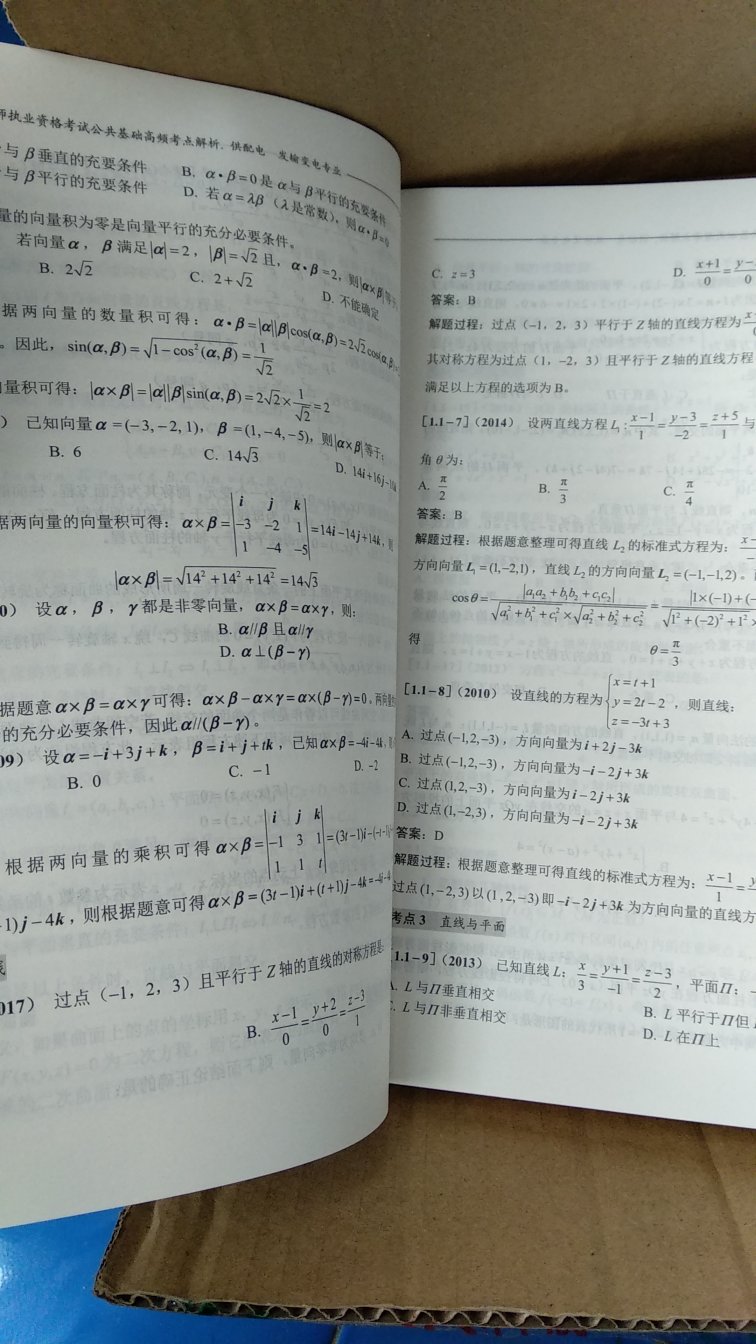 师执业资格考试公共基础高频考点解析. 供配电 发输变电专业
与 β 垂直的充要条件 B. α·β=0是 α与 β平行的充要条件
与 β 平行的充要条件 D. 若 α=λβ (λ是常数), 则 α·β=0
量的向量积为零是向量平行的充分必要条件。
若向量 α, β 满足|α|=2, |β|=√2 且, α·β=2, 则|α×β|等于
B. 2√2 C. 2+√2 D. 不能确定
据两向量的数量积可得: α·β=|α||β|cos(α,β)=2√2cos(α,β)
。因此, sin(α,β)=√(1−cos²(α,β))=1/√2
量积可得: |α×β|=|α||β|sin(α,β)=2√2×1/√2=2
) 已知向量 α=(−3,−2,1), β=(1,−4,−5), 则|α×β|等于:
B. 6 C. 14√3 D. 14i+16j−10k
据两向量的向量积可得: α×β=|i j k; −3 −2 1; 1 −4 −5|=14i−14j+14k, 则
|α×β|=√(14²+14²+14²)=14√3
0) 设 α, β, γ 都是非零向量, α×β=α×γ, 则:
B. α//β 且 α//γ
D. α⊥(β−γ)
据题意 α×β=α×γ 可得: α×β−α×γ=α×(β−γ)=0, 两向量
的充分必要条件, 因此 α//(β−γ)。
09) 设 α=−i+3j+k, β=i+j+tk, 已知 α×β=−4i−4k,
B. 0 C. −1 D. −2
根据两向量的乘积可得 α×β=|i j k; −1 3 1; 1 1 t|=(3t−1)i−(−t−1)
−1)j−4k, 则根据题意可得 α×β=(3t−1)i+(t+1)j−4k=−4i−4
线
017) 过点 (−1, 2, 3) 且平行于 Z 轴的直线的对称方程是
B. (x−1)/0=(y+2)/0=(z−3)/1
C. z=3 D. (x+1)/0=y−
答案: B
解题过程: 过点 (−1, 2, 3) 平行于 Z 轴的直线方程为
其对称方程为过点 (1, −2, 3) 且平行于 Z 轴的直线方程
满足以上方程的选项为 B。
[1.1−7] (2014) 设两直线方程 L₁: (x−1)/1=(y−3)/−2=(z+5)/1 与
角 θ 为:
A. π/2 B. π/3 C. π/4
答案: B
解题过程: 根据题意整理可得直线 L₂ 的标准式方程为: x−
方向向量 L₁=(1,−2,1), 直线 L₂ 的方向向量 L₂=(−1,−1,2)。
cosθ=|a₁a₂+b₁b₂+c₁c₂|/(√(a₁²+b₁²+c₁²)×√(a₂²+b₂²+c₂²))=|1×(−1)+(−/√(1²+(−2)²+1²)×
得 θ=π/3
[1.1−8] (2010) 设直线的方程为{x=t+1; y=2t−2; z=−3t+3, 则直线:
A. 过点(−1,2,−3), 方向向量为 i+2j−3k
B. 过点(−1,2,−3), 方向向量为−i−2j+3k
C. 过点(1,2,−3), 方向向量为 i−2j+3k
D. 过点(1,−2,3), 方向向量为−i−2j+3k
答案: D
解题过程: 根据题意整理可得直线的标准式方程为: (x−1)/1=
过点(1,−2,3)以(1,2,−3)即−i−2j+3k 为方向向量的直线方
考点 3 直线与平面
1.1−9] (2013) 已知直线 L: x/3=(y+1)/−1=(z−3)/2, 平面Π: −
. L 与Π垂直相交 B. L 平行于Π但
. L 与Π非垂直相交 D. L 在Π上